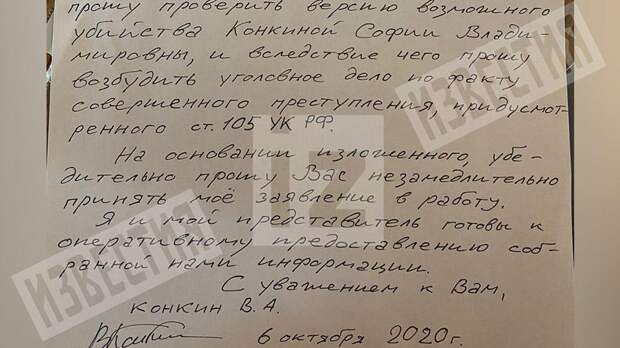 прошу проверить версию возможного
убийства Конкиной Софии Влади-
мировны, и вследствие чего прошу
возбудить уголовное дело по факту
совершенного преступления, придусмот-
ренного ст. 105 УК РФ.
На основании изложенного, убе-
дительно прошу Вас незамедлительно
принять моё заявление в работу.
Я и мой представитель готовы к
оперативному предоставлению соб-
ранной нами информации.
С уважением к Вам,
Конкин В.А.
6 октября 2020г.
ИЗВЕСТИЯ
ИЗВЕСТИЯ
iz